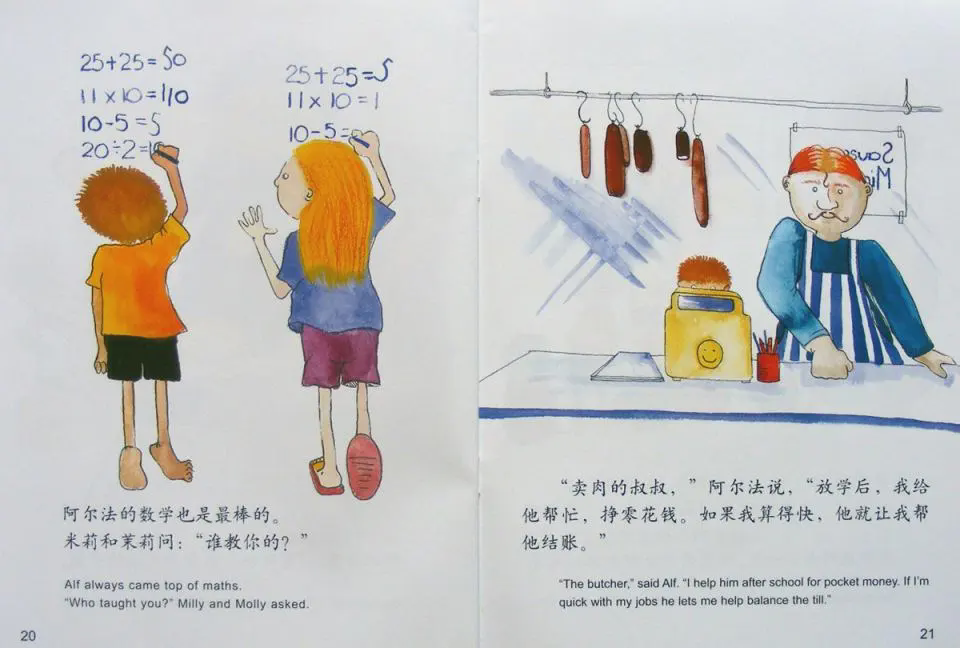 25+25=50
11×10=110
10-5=5
20÷2=1
25+25=5
11×10=1
10-5=
阿尔法的数学也是最棒的。
米莉和茉莉问：“谁教你的？”
Alf always came top of maths.
“Who taught you?” Milly and Molly asked.
20
“卖肉的叔叔，”阿尔法说，“放学后，我给
他帮忙，挣零花钱。如果我算得快，他就让我帮
他结账。”
“The butcher,” said Alf. “I help him after school for pocket money. If I’m
quick with my jobs he lets me help balance the till.”
21